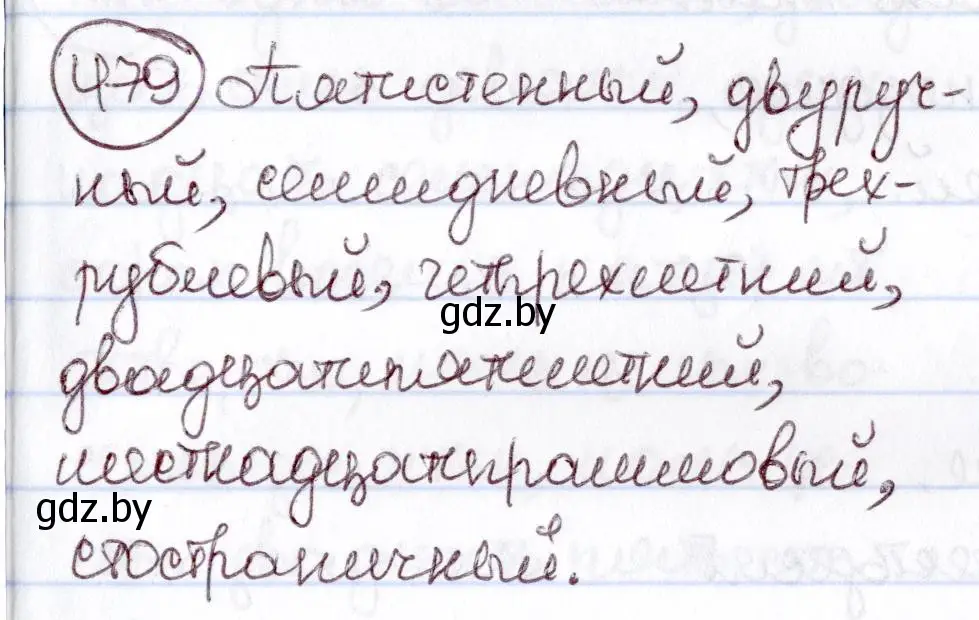 479 Пятистенный, двуруч-
ный, семидневный, трех-
рублевый, четырехлетний,
gdz.by
двадцатипятилетний,
шестнадцатиграммовый,
gdz.by
стостраничный.